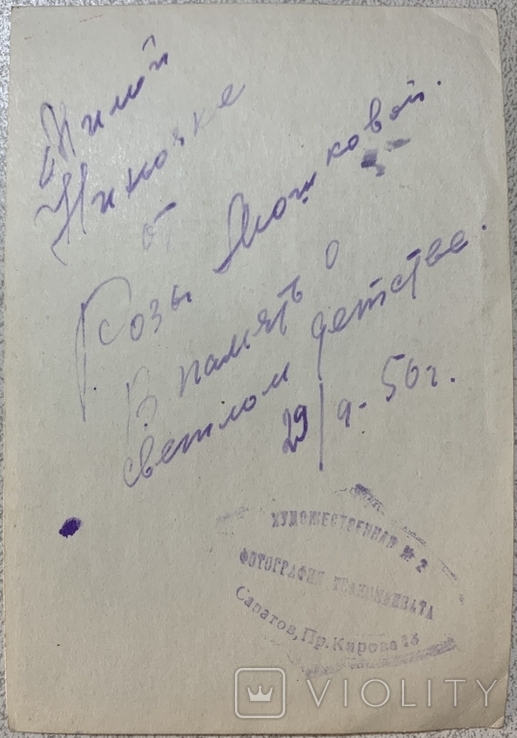 Милой
Ниночке
от
Розы Мошковой.
В память о
светлом детстве.
29/9-56г.
ХУДОЖЕСТВЕННАЯ № 2
ФОТОГРАФИЯ
Саратов, Пр. Кирова 26
VIOLITY